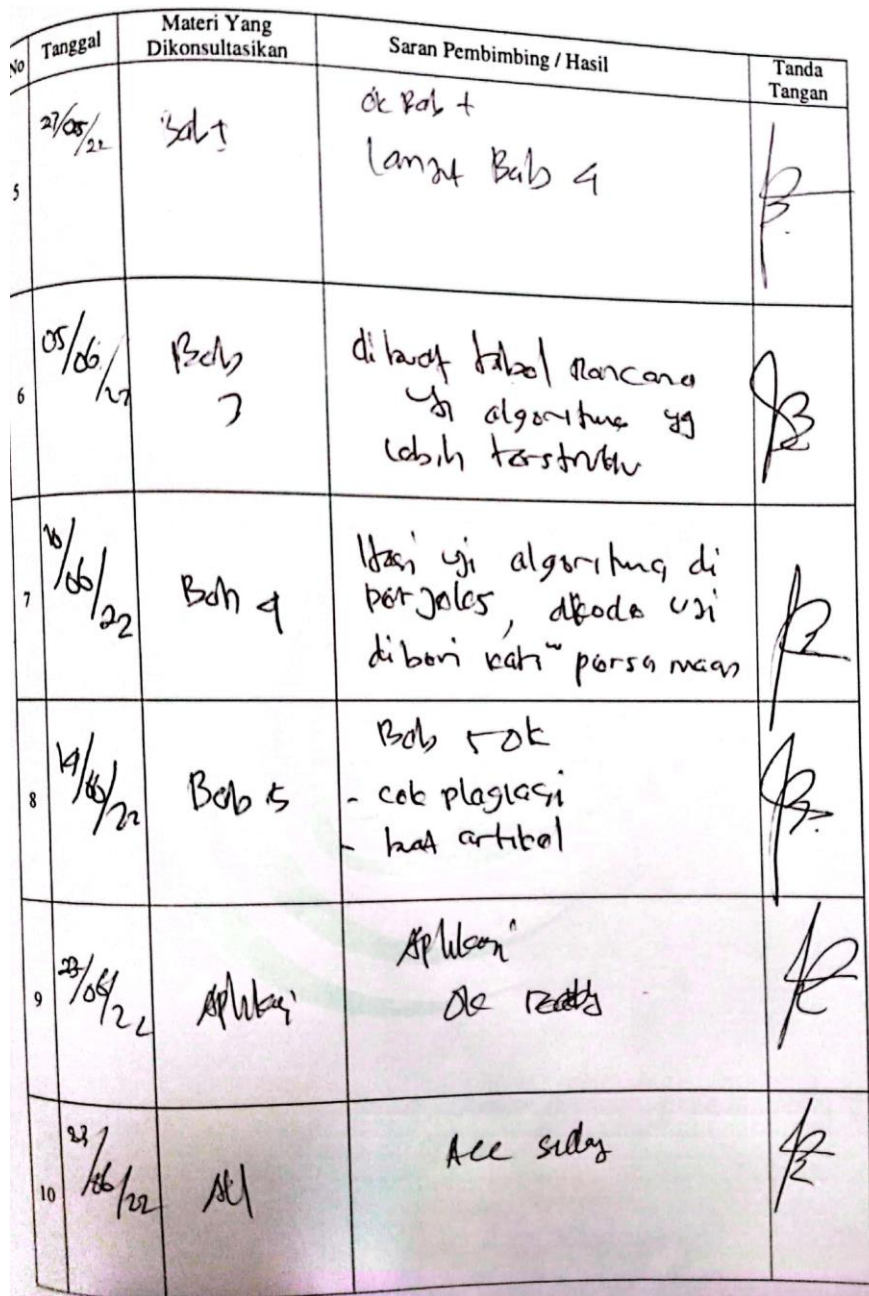 No Tanggal Materi Yang Dikonsultasikan Saran Pembimbing / Hasil Tanda Tangan
5 27/05/22 Bab ok Bab
lanjut Bab 4
6 05/06/22 Bab 3 dibuat tabel rancana
uji algoritma yg
lebih terstruktur
7 06/22 Bab 4 Hasil uji algoritma di
perjelas, uji
diberi persamaan
8 14/06/22 Bab 5 Bab 5 ok
- cek plagiasi
- buat artikel
9 23/06/22 Aplikasi Aplikasi
ok ready
10 06/22 All Acc sidang